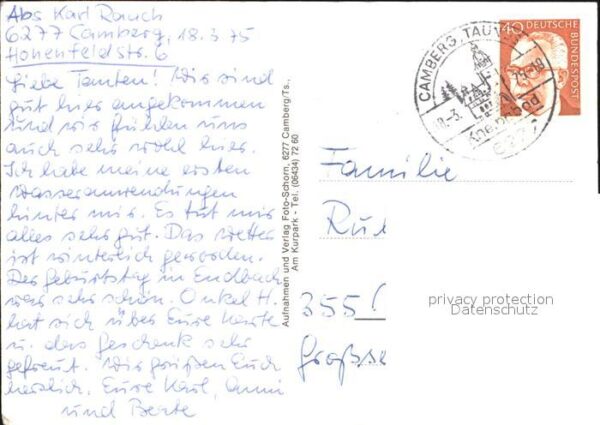 Abs Karl Rauch
6277 Camberg, 18.3.75
Hohenfeldstr. 6
Liebe Tanten! Wir sind
gut hier angekommen
und wir fühlen uns
auch sehr wohl hier.
Ich habe meine ersten
Wasseranwendungen
hinter mir. Es tut mir
alles sehr gut. Das Wetter
ist winterlich geworden.
Der Geburtstag in Endbach
war sehr schön. Onkel H.
hat sich über Eure Karte
u. das Geschenk sehr
gefreut. Wir grüßen Euch
herzlich. Eure Karl, Anni
und Beate
Aufnahmen und Verlag Foto-Schorn, 6277 Camberg/Ts.,
Am Kurpark - Tel. (06434) 72 60
CAMBERG, TAUNUS
Kneippbad
6277
40
DEUTSCHE
BUNDESPOST
Familie
355
Große
privacy protection
Datenschutz